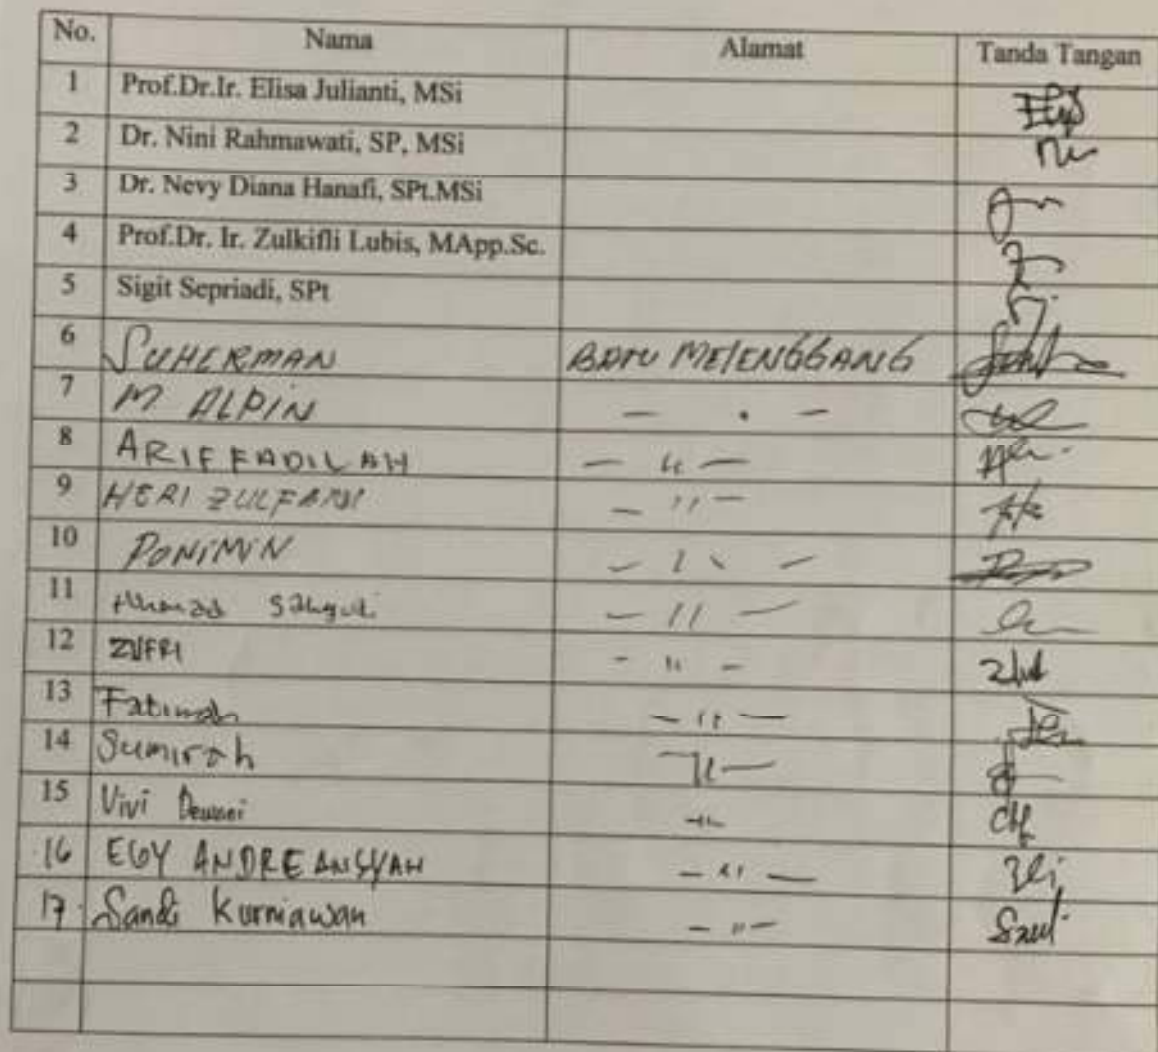 No. Nama Alamat Tanda Tangan
1 Prof.Dr.Ir. Elisa Julianti, MSi
2 Dr. Nini Rahmawati, SP, MSi
3 Dr. Nevy Diana Hanafi, SPt.MSi
4 Prof.Dr. Ir. Zulkifli Lubis, MApp.Sc.
5 Sigit Sepriadi, SPt
6 SUHERMAN BATU MELENGGANG
7 M ALPIN - " -
8 ARIF FADILAH - " -
9 HERI - " -
10 PONIMIN - " -
11 - " -
12 ZUFRI - " -
13 Fatimah - " -
14 Sumirah - " -
15 Vivi - " -
16 EGY ANDREANSYAH - " -
17 Sandi Kurniawan - " -